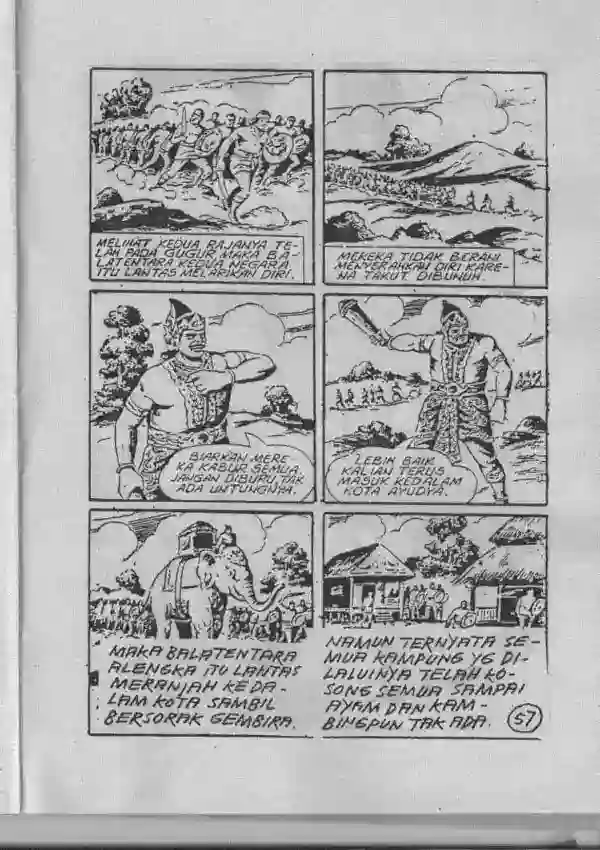 MELIHAT KEDUA RAJANYA TE-
LAH PADA GUGUR MAKA BA-
LATENTARA KEDUA NEGARA
ITU LANTAS MELARIKAN DIRI.
MEREKA TIDAK BERANI
MENYERAHKAN DIRI KARE-
NA TAKUT DIBUNUH.
BIARKAN MERE
KA KABUR SEMUA
JANGAN DIBURU, TAK
ADA UNTUNGNYA.
LEBIH BAIK
KALIAN TERUS
MASUK KEDALAM
KOTA AYUDYA.
MAKA BALATENTARA
ALENGKA ITU LANTAS
MERANJAH KEDA-
LAM KOTA SAMBIL
BERSORAK GEMBIRA.
NAMUN TERNYATA SE-
MUA KAMPUNG YG DI-
LALUINYA TELAH KO-
SONG SEMUA SAMPAI
AYAM DAN KAM-
BINGPUN TAK ADA.
57